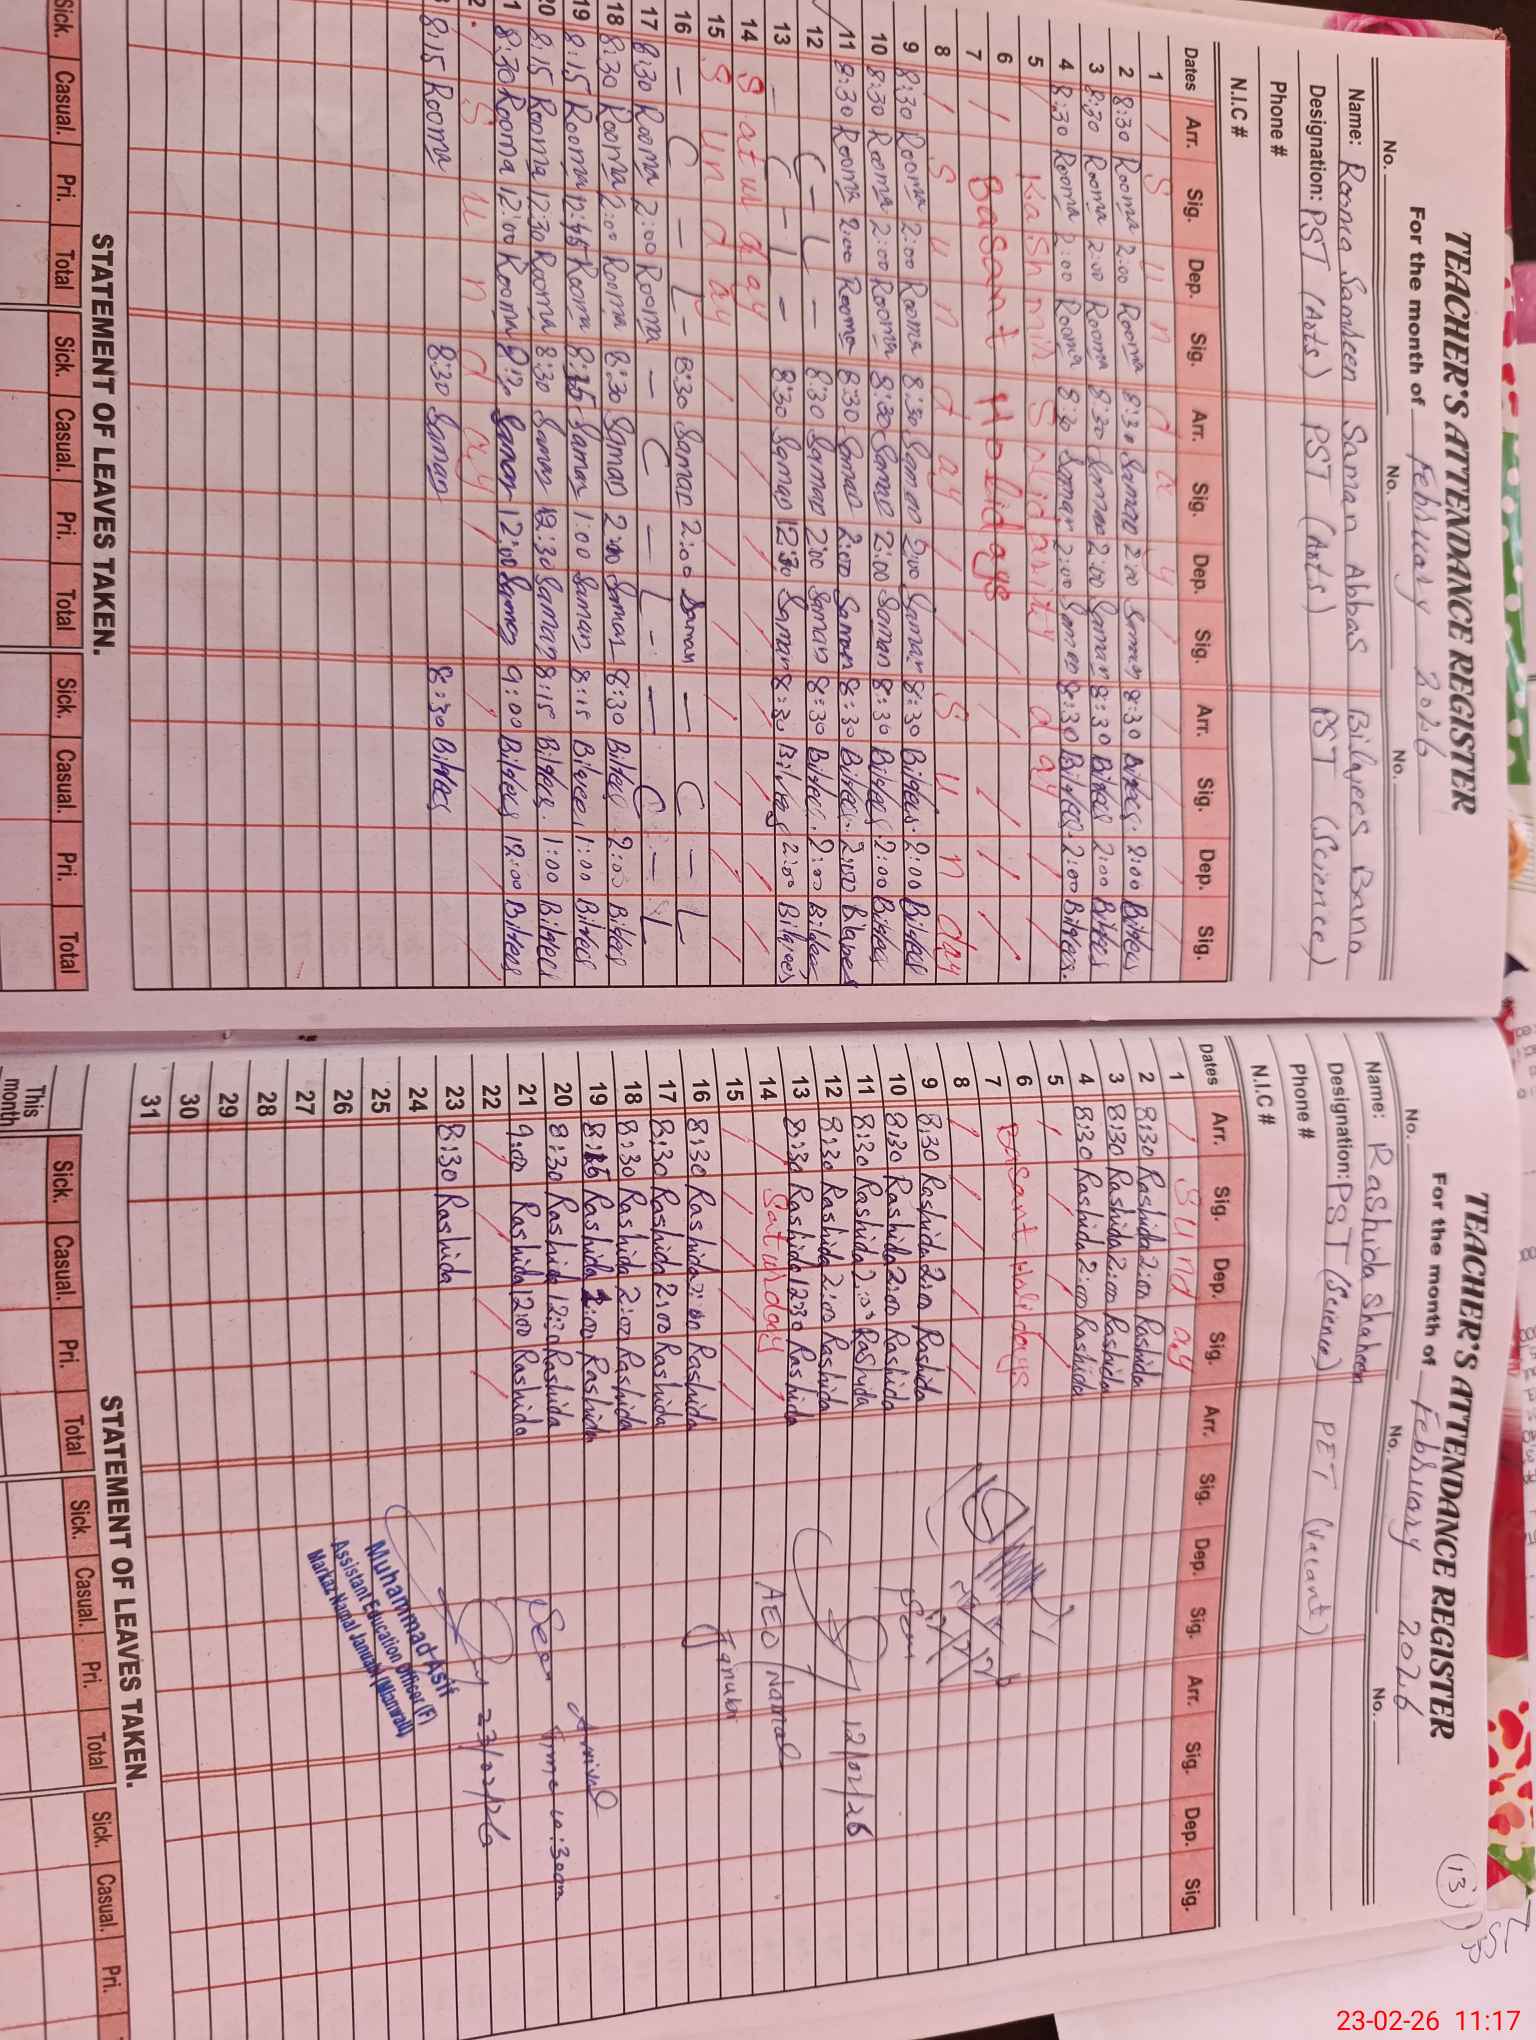 TEACHER'S ATTENDANCE REGISTER
For the month of February 2026
No. No. No.
Name: Rooma Samdeen Saman Abbas Bilqees Bano
Designation: PST (Arts) PST (Arts) PST (Science)
Phone #
N.I.C #
Dates Arr. Sig. Dep. Sig. Arr. Sig. Dep. Sig. Arr. Sig. Dep. Sig.
1 / S u n d a y /
2 8:30 Rooma 2:00 Rooma 8:30 Saman 2:00 Saman 8:30 Bilqees 2:00 Bilqees
3 8:30 Rooma 2:00 Rooma 8:30 Saman 2:00 Saman 8:30 Bilqees 2:00 Bilqees
4 8:30 Rooma 2:00 Rooma 8:30 Saman 2:00 Saman 8:30 Bilqees 2:00 Bilqees
5 / Kashmir Solidarity day /
6 Basant Holidays
7
8 / S u n d a y / S u n day
9 8:30 Rooma 2:00 Rooma 8:30 Saman 2:00 Saman 8:30 Bilqees 2:00 Bilqees
10 8:30 Rooma 2:00 Rooma 8:30 Saman 2:00 Saman 8:30 Bilqees 2:00 Bilqees
11 8:30 Rooma 2:00 Rooma 8:30 Saman 2:00 Saman 8:30 Bilqees 2:00 Bilqees
12 C - L - 8:30 Saman 2:00 Saman 8:30 Bilqees 2:00 Bilqees
13 - C - L - 8:30 Saman 12:30 Saman 8:30 Bilqees 2:00 Bilqees
14 S at ur d ay
15 S un d ay
16 - C - L - 8:30 Saman 2:00 Saman - C - L
17 8:30 Rooma 2:00 Rooma - C - L - - C - L
18 8:30 Rooma 2:00 Rooma 8:30 Saman 2:00 Saman 8:30 Bilqees 2:00 Bilqees
19 8:15 Rooma Rooma Saman 1:00 Saman 8:15 Bilqees 1:00 Bilqees
20 8:15 Rooma 12:30 Rooma 8:30 Saman 12:30 Saman 8:15 Bilqees 1:00 Bilqees
1 8:30 Rooma 12:00 Rooma Saman 12:00 Saman 9:00 Bilqees 12:00 Bilqees
2. / S u n d ay /
8:15 Rooma 8:30 Saman 8:30 Bilqees
STATEMENT OF LEAVES TAKEN.
Sick. Casual. Pri. Total Sick. Casual. Pri. Total Sick. Casual. Pri. Total
13
TEACHER'S ATTENDANCE REGISTER
For the month of February 2026
No. No. No.
Name: Rashida Shaheen
Designation: PST (Science) PET (Vacant)
Phone #
N.I.C #
Dates Arr. Sig. Dep. Sig. Arr. Sig. Dep. Sig. Arr. Sig. Dep. Sig.
1 / Sund ay
2 8:30 Rashida 2:00 Rashida
3 8:30 Rashida 2:00 Rashida
4 8:30 Rashida 2:00 Rashida
5
6 Basant Holidays
7
8
9 8:30 Rashida 2:00 Rashida
10 8:30 Rashida 2:00 Rashida
11 8:30 Rashida 2:00 Rashida
12 8:30 Rashida 2:00 Rashida 12/02/26
13 8:30 Rashida 12:30 Rashida
14 Saturday / AEO Namal
15 Janubi
16 8:30 Rashida 2:00 Rashida
17 8:30 Rashida 2:00 Rashida
18 8:30 Rashida 2:00 Rashida
19 Rashida Rashida Arrival
20 8:30 Rashida 12:30 Rashida Seen Time 10:30am
21 9:00 Rashida 12:00 Rashida
22 23/02/26
23 8:30 Rashida
24
25
26
27
28
29
30
31
Muhammad Asif
Assistant Education Officer (F)
Markaz Namal Janubi (Mianwali)
STATEMENT OF LEAVES TAKEN.
This month Sick. Casual. Pri. Total Sick. Casual. Pri. Total Sick. Casual. Pri.
23-02-26 11:17